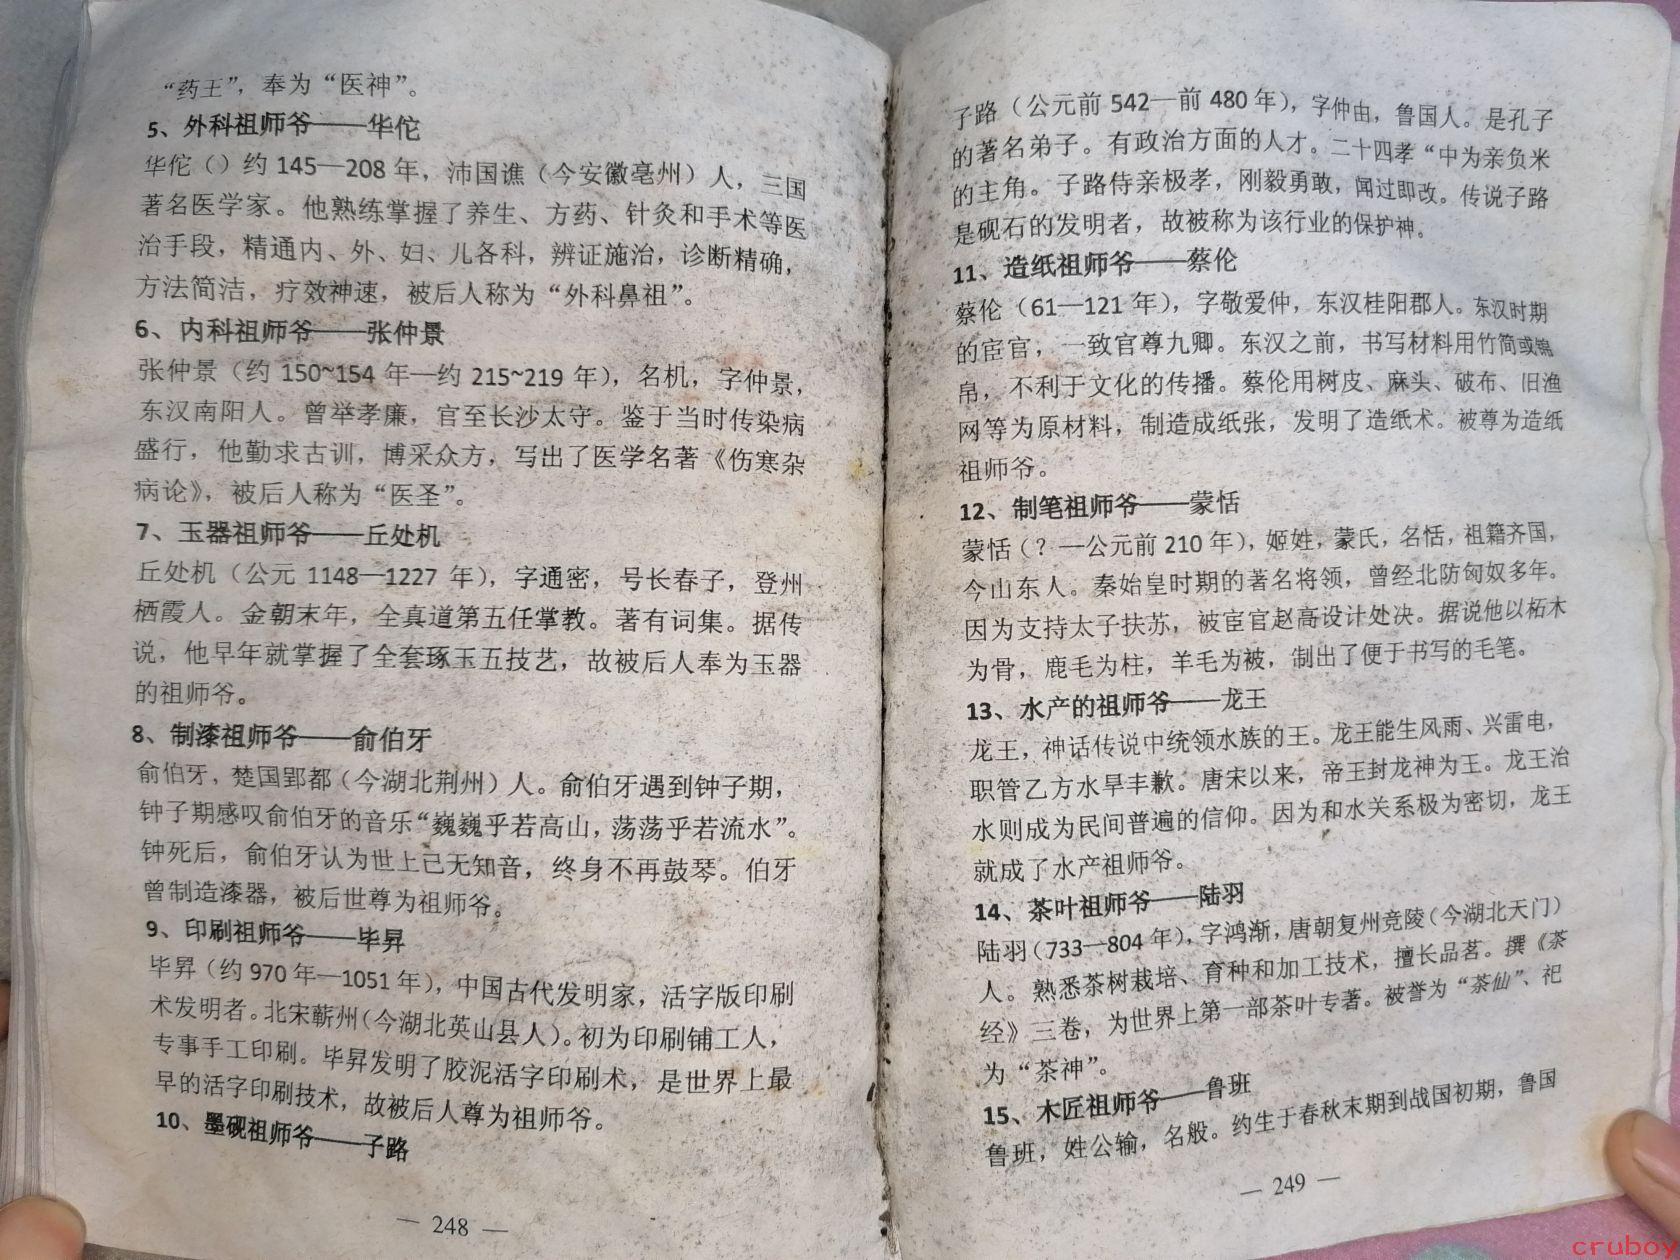 “药王”，奉为“医神”。
5、外科祖师爷——华佗
华佗（）约 145—208 年，沛国谯（今安徽亳州）人，三国
著名医学家。他熟练掌握了养生、方药、针灸和手术等医
治手段，精通内、外、妇、儿各科，辨证施治，诊断精确，
方法简洁，疗效神速，被后人称为“外科鼻祖”。
6、内科祖师爷——张仲景
张仲景（约 150~154 年—约 215~219 年），名机，字仲景，
东汉南阳人。曾举孝廉，官至长沙太守。鉴于当时传染病
盛行，他勤求古训，博采众方，写出了医学名著《伤寒杂
病论》，被后人称为“医圣”。
7、玉器祖师爷——丘处机
丘处机（公元 1148—1227 年），字通密，号长春子，登州
栖霞人。金朝末年，全真道第五任掌教。著有词集。据传
说，他早年就掌握了全套琢玉五技艺，故被后人奉为玉器
的祖师爷。
8、制漆祖师爷——俞伯牙
俞伯牙，楚国郢都（今湖北荆州）人。俞伯牙遇到钟子期，
钟子期感叹俞伯牙的音乐“巍巍乎若高山，荡荡乎若流水”。
钟死后，俞伯牙认为世上已无知音，终身不再鼓琴。伯牙
曾制造漆器，被后世尊为祖师爷。
9、印刷祖师爷——毕昇
毕昇（约 970 年—1051 年），中国古代发明家，活字版印刷
术发明者。北宋蕲州（今湖北英山县人）。初为印刷铺工人，
专事手工印刷。毕昇发明了胶泥活字印刷术，是世界上最
早的活字印刷技术，故被后人尊为祖师爷。
10、墨砚祖师爷——子路
— 248 —
子路（公元前 542—前 480 年），字仲由，鲁国人。是孔子
的著名弟子。有政治方面的人才。二十四孝“中为亲负米
的主角。子路侍亲极孝，刚毅勇敢，闻过即改。传说子路
是砚石的发明者，故被称为该行业的保护神。
11、造纸祖师爷——蔡伦
蔡伦（61—121 年），字敬爱仲，东汉桂阳郡人。东汉时期
的宦官，一致官尊九卿。东汉之前，书写材料用竹简或锦
帛，不利于文化的传播。蔡伦用树皮、麻头、破布、旧渔
网等为原材料，制造成纸张，发明了造纸术。被尊为造纸
祖师爷。
12、制笔祖师爷——蒙恬
蒙恬（？—公元前 210 年），姬姓，蒙氏，名恬，祖籍齐国，
今山东人。秦始皇时期的著名将领，曾经北防匈奴多年。
因为支持太子扶苏，被宦官赵高设计处决。据说他以柘木
为骨，鹿毛为柱，羊毛为被，制出了便于书写的毛笔。
13、水产的祖师爷——龙王
龙王，神话传说中统领水族的王。龙王能生风雨、兴雷电，
职管乙方水旱丰歉。唐宋以来，帝王封龙神为王。龙王治
水则成为民间普遍的信仰。因为和水关系极为密切，龙王
就成了水产祖师爷。
14、茶叶祖师爷——陆羽
陆羽（733—804 年），字鸿渐，唐朝复州竞陵（今湖北天门）
人。熟悉茶树栽培、育种和加工技术，擅长品茗。撰《茶
经》三卷，为世界上第一部茶叶专著。被誉为“茶仙”、祀
为“茶神”。
15、木匠祖师爷——鲁班
鲁班，姓公输，名般。约生于春秋末期到战国初期，鲁国
— 249 —
cruboy